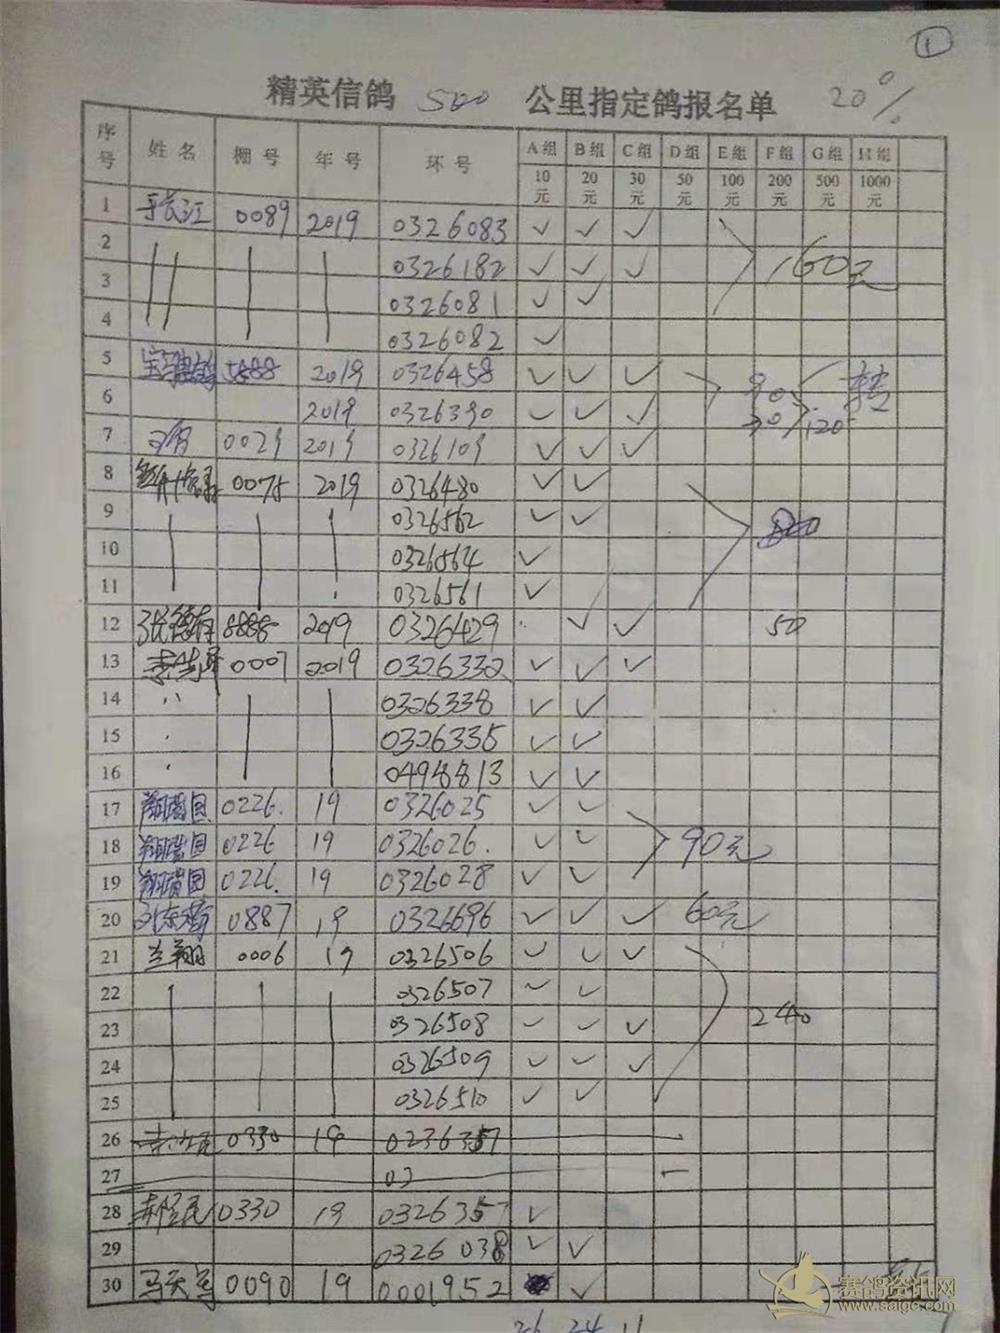 ①
精英信鸽 500 公里指定鸽报名单 20%
序号 姓名 棚号 年号 环号 A组 B组 C组 D组 E组 F组 G组 H组
10元 20元 30元 50元 100元 200元 500元 1000元
1 于长江 0089 2019 0326083 ✓ ✓ ✓
2 0326182 ✓ ✓ ✓ 160元
3 0326081 ✓ ✓
4 0326082 ✓
5 5888 2019 0326458 ✓ ✓ ✓ 90 转
6 2019 0326390 ✓ ✓ ✓ 30 120
7 0029 2019 0326109 ✓ ✓ ✓
8 0075 2019 0326480 ✓ ✓
9 0326562 ✓ ✓
10 0326564 ✓
11 0326561 ✓
12 张德存 8885 2019 0326429 ✓ ✓ 50
13 0007 2019 0326332 ✓ ✓ ✓
14 0326338 ✓ ✓
15 0326335 ✓ ✓
16 0498813 ✓ ✓
17 翔瑞园 0226. 19 0326025 ✓ ✓
18 翔瑞园 0226 19 0326026. ✓ ✓ 90元
19 翔瑞园 0226. 19 0326028 ✓ ✓
20 0887 19 0326696 ✓ ✓ ✓ 60元
21 兰翔 0006 19 0326506 ✓ ✓ ✓
22 0326507 ✓ ✓
23 0326508 ✓ ✓ ✓ 240
24 0326509 ✓ ✓ ✓
25 0326510 ✓ ✓
26 0330 19 0236357
27 03
28 0330 19 0326357 ✓
29 0326038 ✓ ✓
30 0090 19 0001952 ✓
26 24 11
赛鸽资讯网
www.saige.com